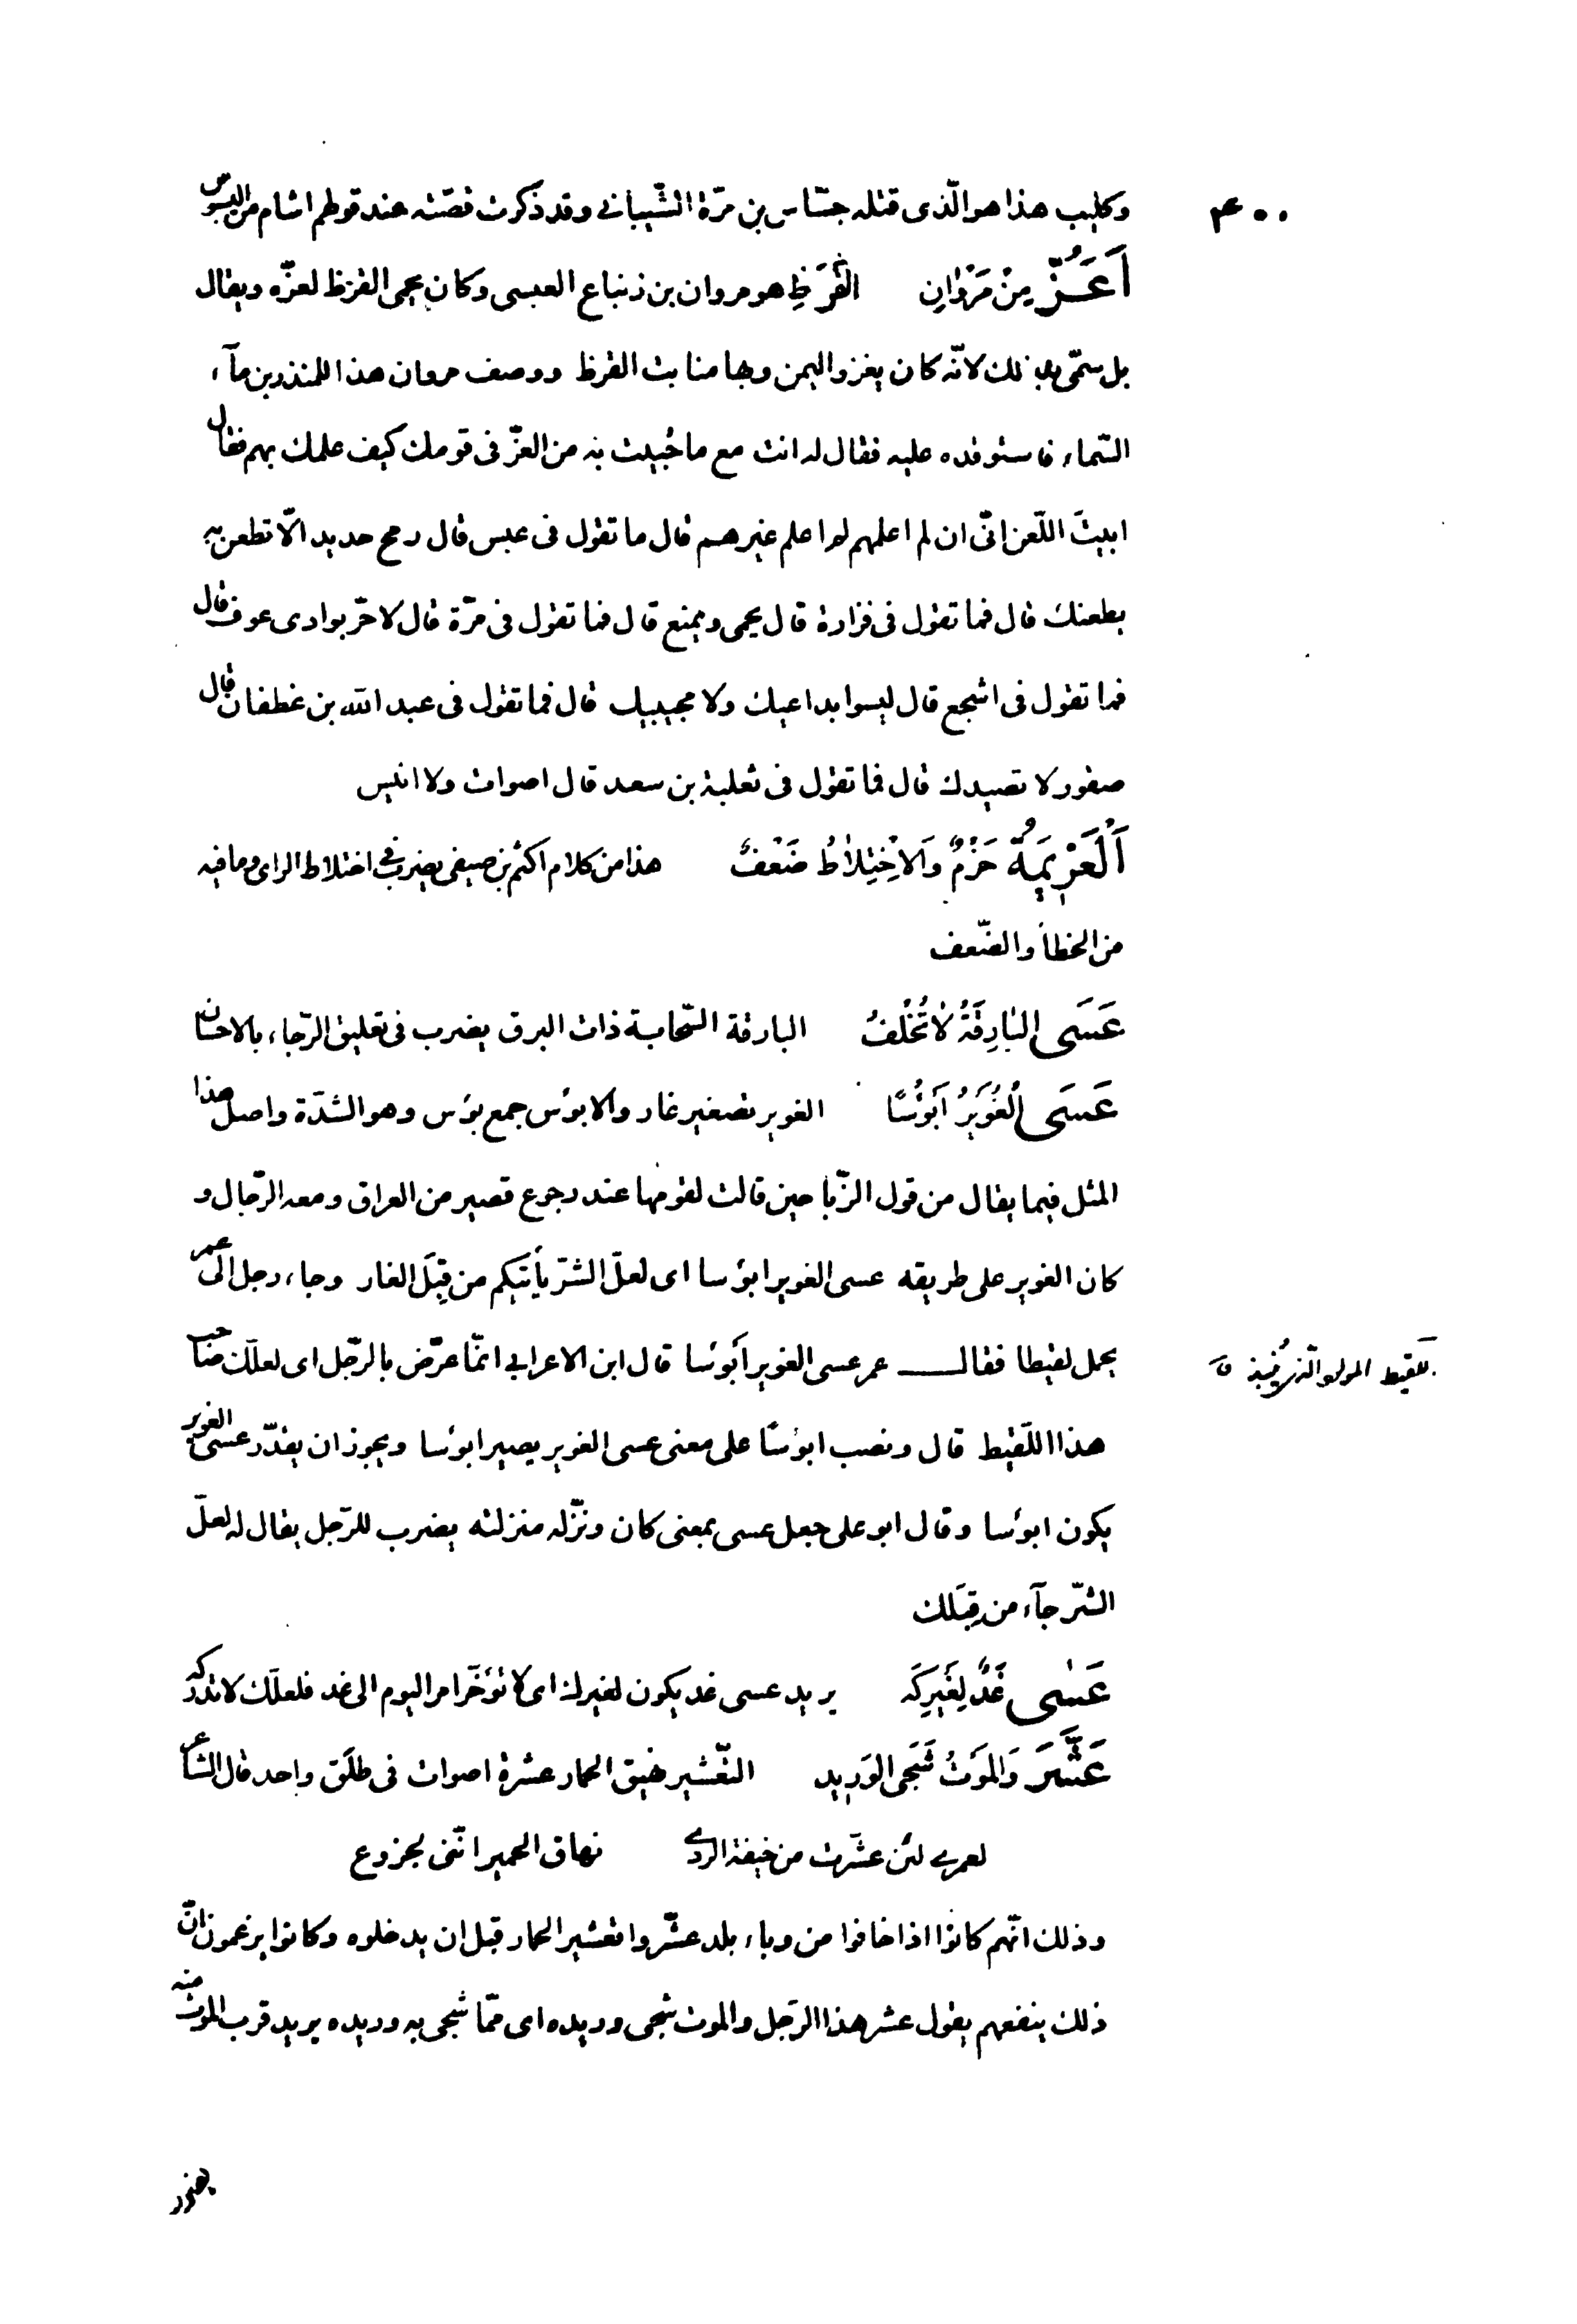 ۴۰۰
وكليب هذا هو الّذى قتله جسّاس بن مرّة الشّيبانى وقد ذكرت قصّته عند قولهم اشام من البسوس
اَعَزُّ مِنْ مَرْوٰانِ القَرَظِ هو مروان بن زنباع العبسى وكان يحمى القرظ لعزّه ويقال
بل سمّى بذلك لانّه كان يغزو اليمن وبها منابت القرظ ووصف مروان هذا للمنذر بن مآء
السّماء فاستوفده عليه فقال له انت مع ما حُبيت به من العزّ فى قومك كيف علمك بهم فقال
ابيتَ اللّعن انّى ان لم اعلمهم لم اعلم غيرهم قال ما تقول فى عبس قال رمح حديد الّا تطعن به
يطعنك قال فما تقول فى فزارة قال يحمى ويمنع قال فما تقول فى مرّة قال لا حرّ بوادى عوف قال
فما تقول فى اشجع قال ليسوا بداعيك ولا مجيبيك قال فما تقول فى عبد الله بن غطفان قال
صقور لا تصيدك قال فما تقول فى ثعلبة بن سعد قال اصوات ولا انيس
اَلْعَزْيمَةُ حَزْمٌ وَالاْخِتِلاٰطُ ضَعْفٌ هذا من كلام اكثم بن صيفى يضرب فى اختلاط الراى وما فيه
من الخطأ والضّعف
عَسَى البٰارِقَةُ لاٰ تُخْلِفُ البارقة السّحابة ذات البرق يضرب فى تعليق الرّجاء بالاحسان
عَسَى الْغُوَيْرُ اَبْؤُسًا الغوير تصغير غار والابؤس جمع بؤس وهو الشدّة واصل هذا
المثل فيما يقال من قول الزّبّا حين قالت لقومها عند رجوع قصير من العراق ومعه الرّجال و
كان الغوير على طريقه عسى الغوير ابؤسا اى لعلّ الشرّ يأتيكم من قِبَل الغار وجاء رجل الى عمر
يحمل لقيطا فقال عمر عسى الغوير اَبؤسا قال ابن الاعرابى انمّا عرّض بالرّجل اى لعلّك صاحب
اللقيط المولود الّذى يُنبذ ق
هذا اللّقيط قال ونصب ابؤسًا على معنى عسى الغوير يصير ابؤسا ويجوز ان يقدّر عسى الغوير
يكون ابؤسا وقال ابو على جعل عسى بمعنى كان ونزّله منزلته يضرب للرّجل يقال له لعلّ
الشّر جآء من قِبَلك
عَسٰى غَدٌ لِغَيرِكَ يريد عسى غد يكون لغيرك اى لا تؤخّر امر اليوم الى غد فلعلّك لا تدركه
عَشَّرَ وَالمَوْتُ شَجَى الوَريد التّعشير نهيق الحمار عشرة اصوات فى طَلَق واحد قال الشاعر
لعمرى لئن عشّرت من خيفة الردى نهاق الحمير انّنى لجزوع
وذلك انّهم كانوا اذا خافوا من وباء بلد عشّروا تعشير الحمار قبل ان يدخلوه وكانوا يزعمون انّ
ذلك ينفعهم يقول عشر هذا الرّجل والموت شجى وريده اى ممّا شجى به وريده يريد قرب الموت منه